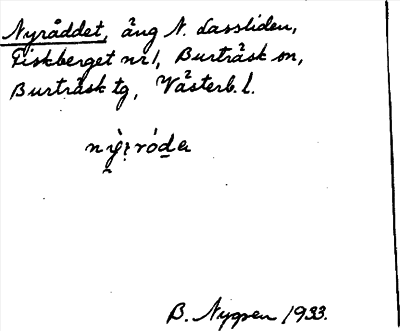 Nyråddet, äng N. Lassliden,
Fiskberget nr 1, Burträsk sn,
Burträsk tg, Västerb. l.
B. Nygren 1933.